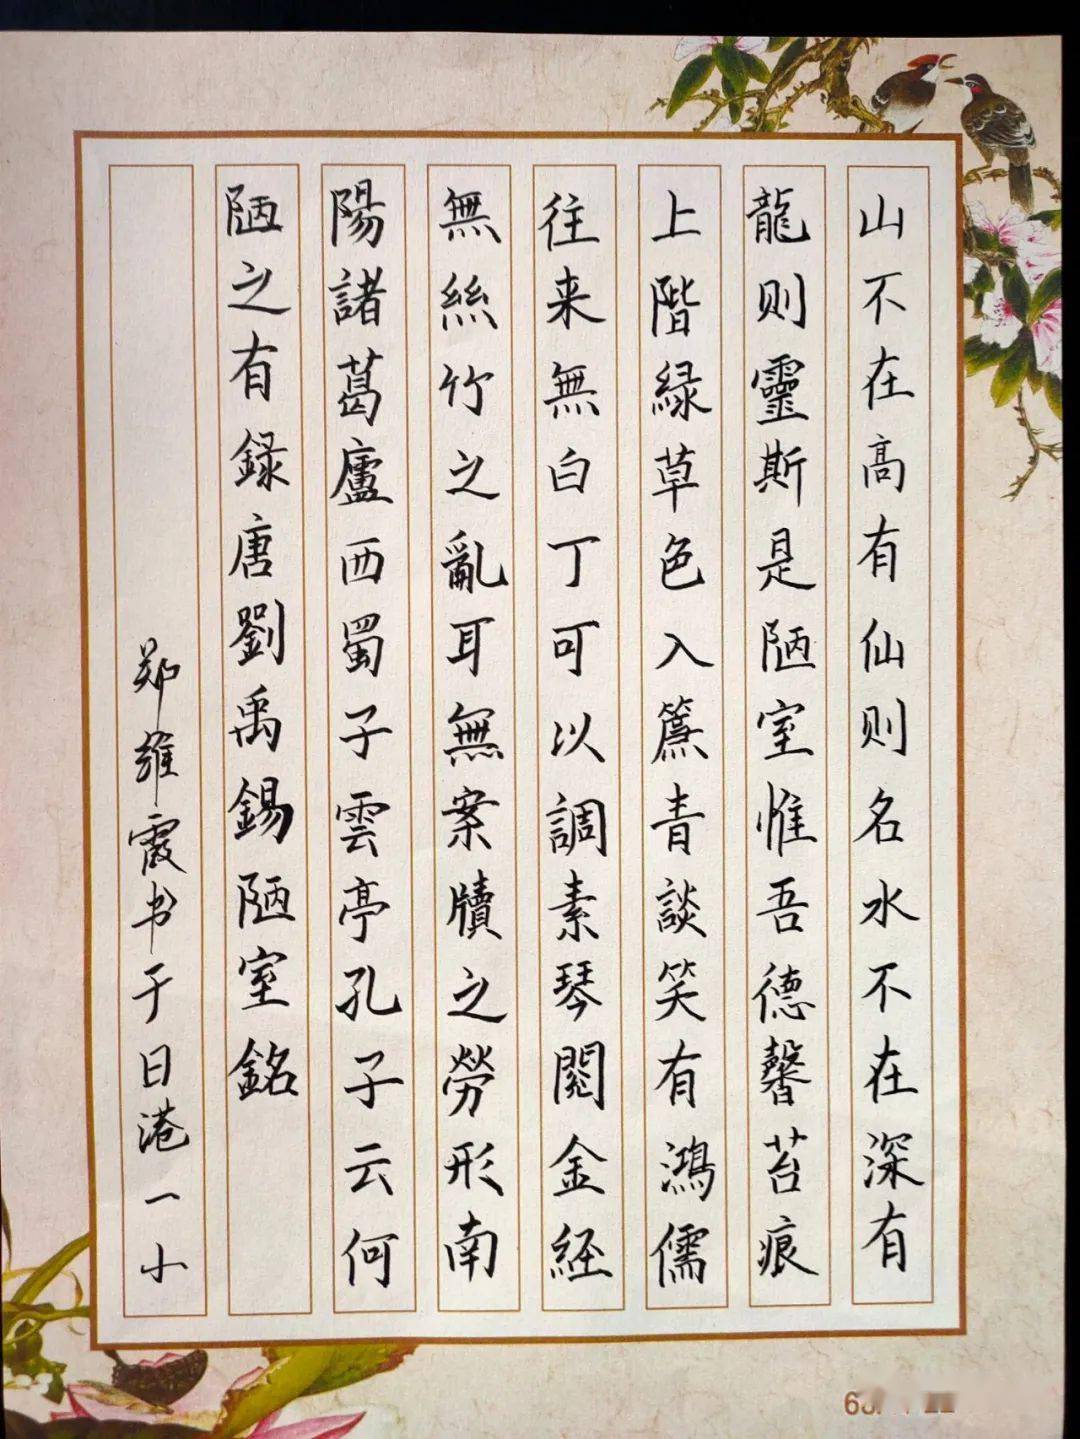 山不在高有仙则名水不在深有
龍则靈斯是陋室惟吾德馨苔痕
上階緑草色入簾青談笑有鴻儒
往来無白丁可以調素琴閲金経
無絲竹之亂耳無案牘之勞形南
陽諸葛廬西蜀子雲亭孔子云何
陋之有録唐劉禹錫陋室銘
郑維霞书于日港一小